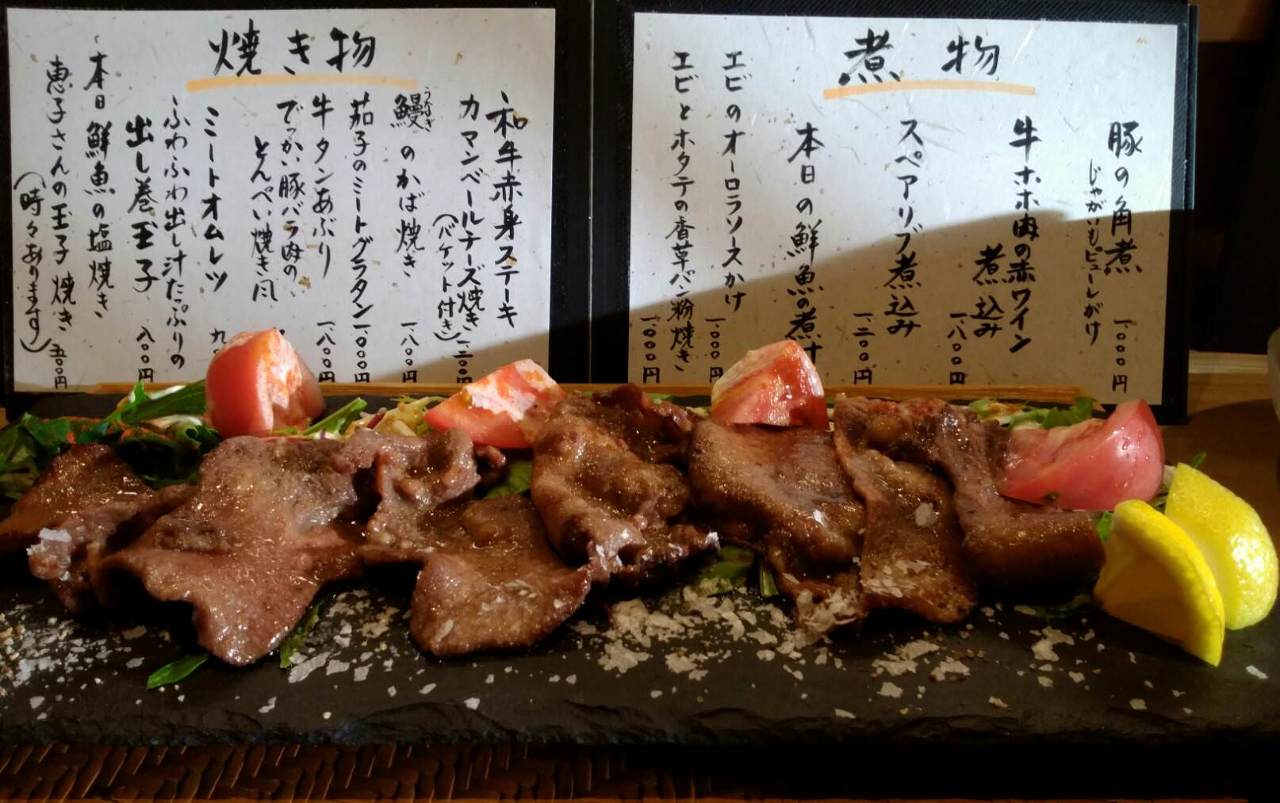 煮物
豚の角煮 一、000円
じゃがいもピューレがけ
牛ホホ肉の赤ワイン
煮込み 一、八00円
スペアリブ煮込み 一、二00円
本日の鮮魚の煮
エビのオーロラソースかけ 一、000円
エビとホタテの香草パン粉焼き 一、000円
焼き物
和牛赤身ステーキ
カマンベールチーズ焼き 一、二00円
(バケット付き)
うなぎ
鰻のかば焼き 一、八00円
茄子のミートグラタン 一、000円
牛タンあぶり 一、八00円
でっかい豚バラ肉の
とんぺい焼き風
ミートオムレツ 九
ふわふわ出し汁たっぷりの
出し巻玉子 八00円
本日鮮魚の塩焼き
恵子さんの玉子焼き 五00円
(時々あります)